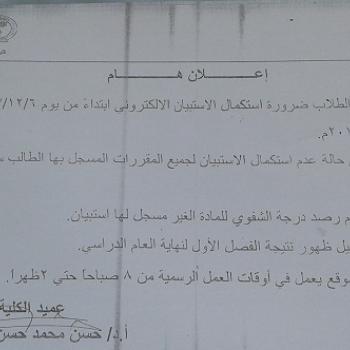 إعـــــلان هـــــام
الطلاب ضرورة استكمال الاستبيان الالكترونى ابتداءً من يوم ١٢/٦/
م.
حالة عدم استكمال الاستبيان لجميع المقررات المسجل بها الطالب
رصد درجة الشفوي للمادة الغير مسجل لها استبيان.
ظهور نتيجة الفصل الأول لنهاية العام الدراسي.
يعمل في أوقات العمل الرسمية من ٨ صباحا حتي ٢ظهرا.
عميد الكلية
أ.د/ حسن محمد حسن